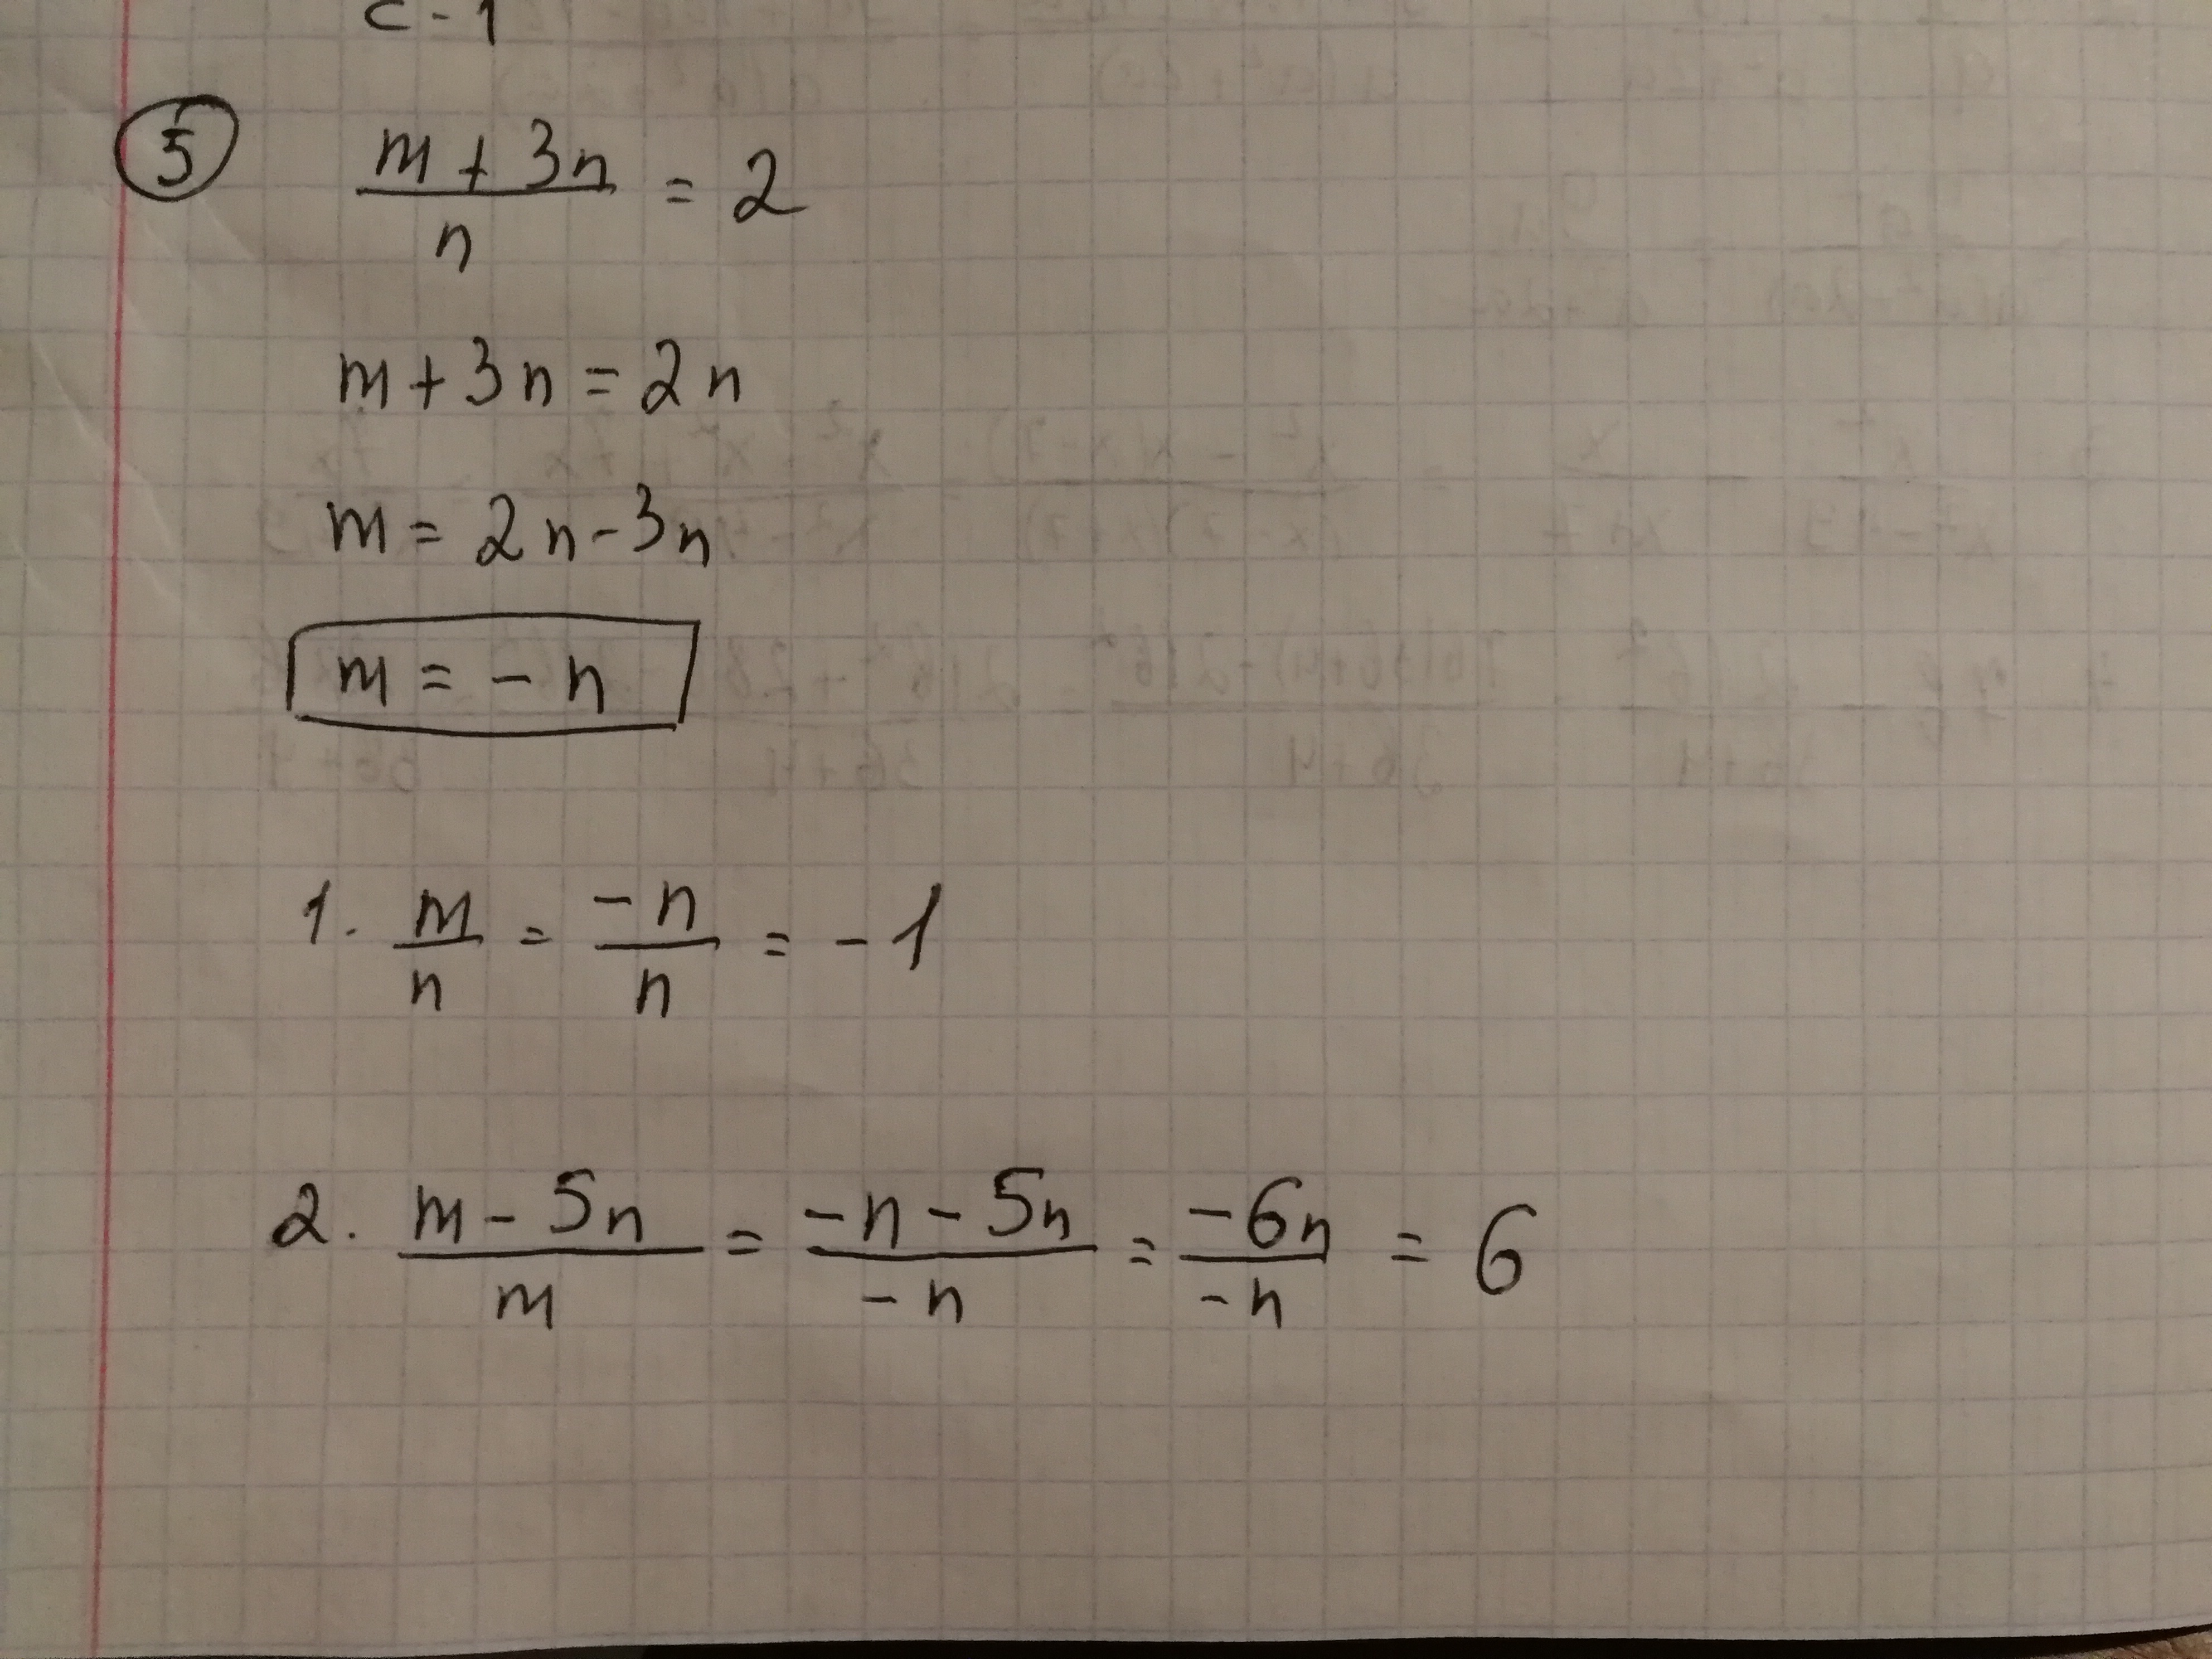 c - 1
5
m + 3n / n = 2
m + 3n = 2n
m = 2n - 3n
m = - n
1. m / n = -n / n = - 1
2. m - 5n / m = -n - 5n / -n = -6n / -n = 6